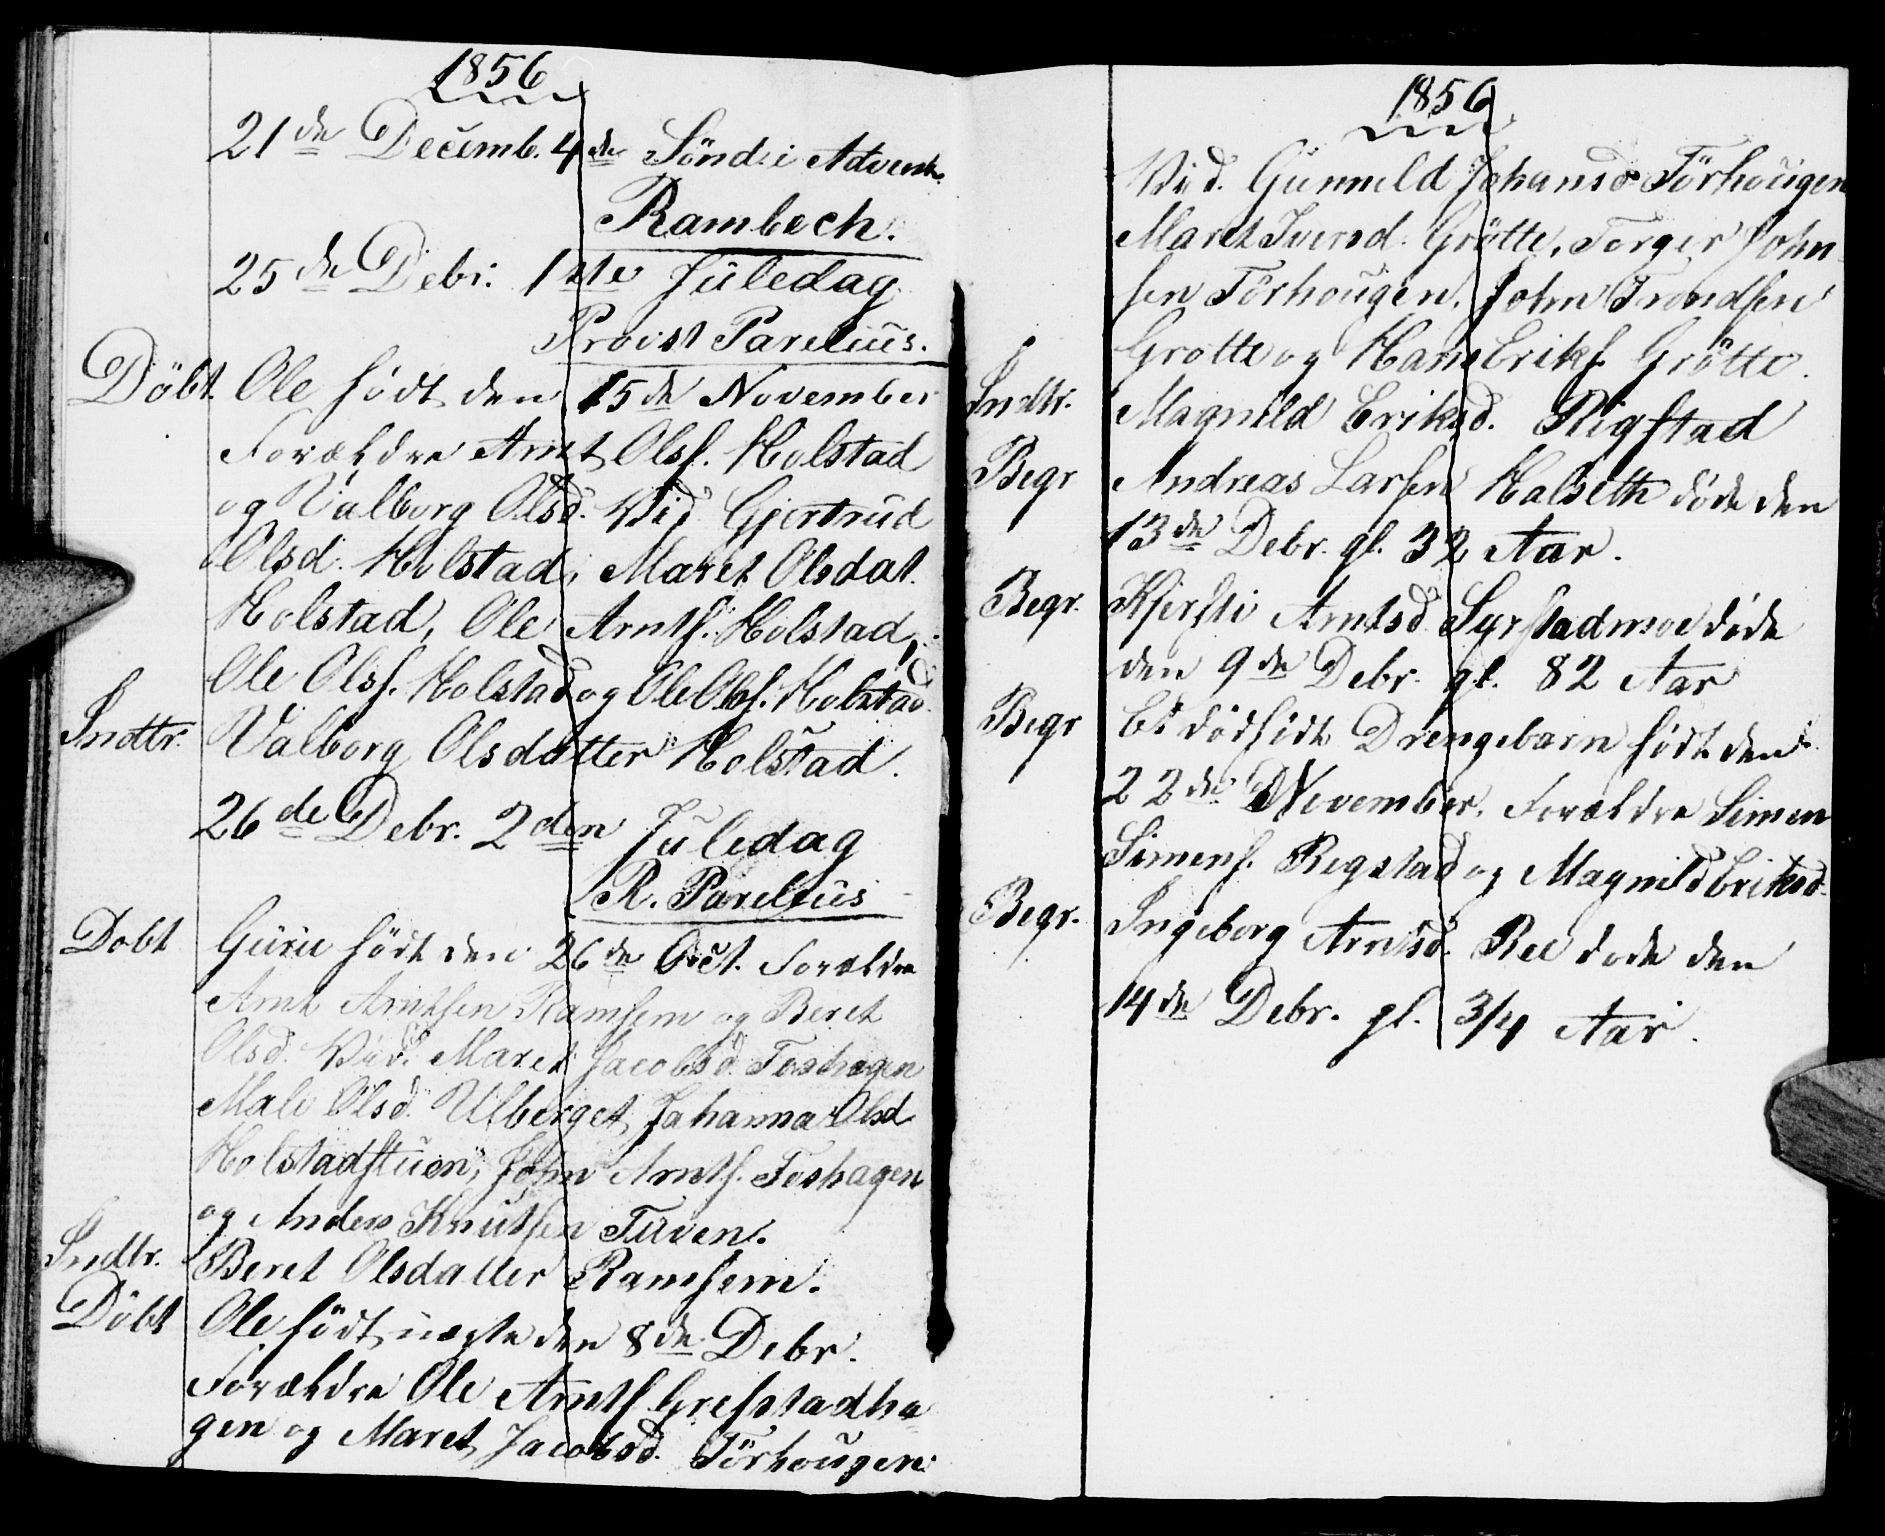 1856
21de Decemb. 4de Sönd: i Advent.
Rambech.
25de Debr. 1ste Juledag
Provst Parelius.
Döbt. Ole født den 15de November
Forældre Arnt Olss. Holstad
og Valborg Olsd. Vid. Gjertrud
Olsd. Holstad, Maret Olsdat.
Holstad, Ole Arnts. Holstad,
Ole Olss. Holstad og Ole Olss. Holstad.
Indtr. Valborg Olsdatter Holstad.
26de Debr. 2den Juledag
R. Parelius
Dobt Guru födt den 26de Oct. Forældre
Arnt Arntsen Ramsem og Beret
Olsd. Vid. Maret Jacobsd. Foshagen
Mali Olsd. Ulberget, Johanna Olsd
Holstadstuen, John Arnts. Foshagen
og Anders Knutsen Tuven.
Indtr. Beret Olsdatter Ramsem.
Döbt Ole födt uægte den 8de Debr.
Forældre Ole Arnts. Grefstadha-
gen og Maret Jacobsd. Törhougen.
1856
Vid. Gunnild Johansd Törhougen
Maret Iversd. Grötte, Torger John-
sen Törhougen, John Trondsen
Grotte og Hans Eriks. Grötte.
Indtr. Magnild Eriksd. Rigstad
Begr Andreas Larsen Halseth døde den
13de Debr. gl. 32 Aar.
Begr. Kjersti Arntsd Syrstadmoe døde
den 9de Debr. gl. 82 Aar
Begr Et dödfödt Drengebarn födt den
22de November. Forældre Simen
Simens. Regstad og Magnild Eriksd.
Begr. Ingeborg Arntsd. Ree dode den
14de Debr. gl. 3/4 Aar.